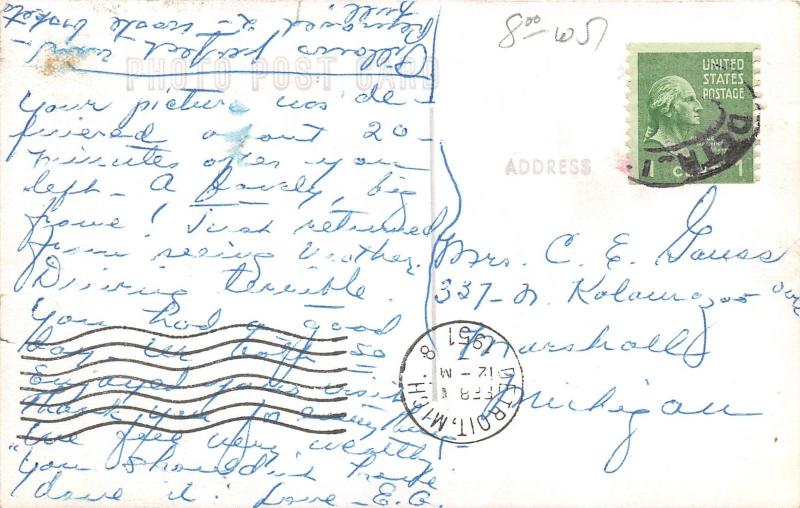 PHOTO POST CARD
ADDRESS
8⁰⁰
UNITED
STATES
POSTAGE
1
Your picture was de-
livered about 20-
minutes after you
left - A lovely, big
frame! Just returned
from seeing Mother.
Driving terrible.
You had a good
day. We both so
enjoyed your visit
Thank you for everything
We feel very wealthy!
"You shouldn't have
done it! Love - E.G.
Pillows perfect and
Removed 2 - waste baskets
full!
Mrs. C. E. Gauss
337 - N. Kalamazoo Ave
Marshall
Michigan
DETROIT, MICH.
FEB 8
12 - M
1951
8